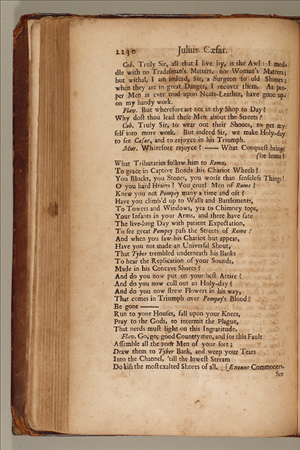 2230 Julius Cæsar.
Cob. Truly Sir, all that I live by, is the Awl: I med-
dle with no Tradesman's Matters, nor Woman's Matters;
but withal, I am indeed, Sir, a Surgeon to old Shooes;
when they are in great Danger, I recover them. As pro-
per Men as ever trod upon Neats-Leather, have gone up-
on my handy work.
Flav. But wherefore art not in thy Shop to Day?
Why dost thou lead these Men about the Streets?
Cob. Truly Sir, to wear out their Shooes, to get my
self into more work. But indeed Sir, we make Holy-day
to see Cæsar, and to rejoyce in his Triumph.
Mur. Wherefore rejoyce? —— What Conquest brings
(he home?
What Tributaries follow him to Rome,
To grace in Captive Bonds his Chariot Wheels?
You Blocks, you Stones, you worse than senseless Things!
O you hard Hearts! You cruel Men of Rome!
Knew you not Pompey many a time and oft?
Have you climb'd up to Walls and Battlements,
To Towers and Windows, yea to Chimney tops,
Your Infants in your Arms, and there have sate
The live-long Day with patient Expectation,
To see great Pompey pass the Streets of Rome?
And when you saw his Chariot but appear,
Have you not made an Universal Shout,
That Tyber trembled underneath his Banks
To hear the Replication of your Sounds,
Made in his Concave Shores?
And do you now put on your best Attire?
And do you now cull out an Holy-day?
And do you now strew Flowers in his way,
That comes in Triumph over Pompey's Blood?
Be gone ——
Run to your Houses, fall upon your Knees,
Pray to the Gods, to intermit the Plague,
That needs must light on this Ingratitude.
Flav. Go, go, good Countrymen, and for this Fault
Assemble all the poor Men of your sort;
Draw them to Tyber Bank, and weep your Tears
Into the Channel, 'till the lowest Stream
Do kiss the most exalted Shores of all. [Exeunt Commoners.
See